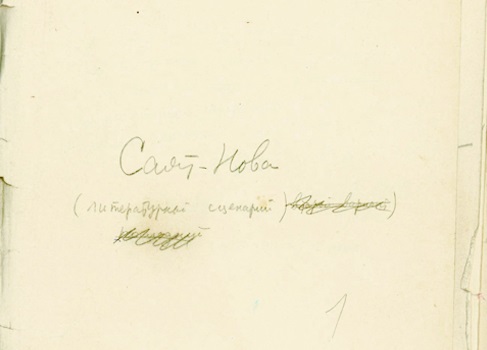 Саят-Нова
(литературный сценарий)
1